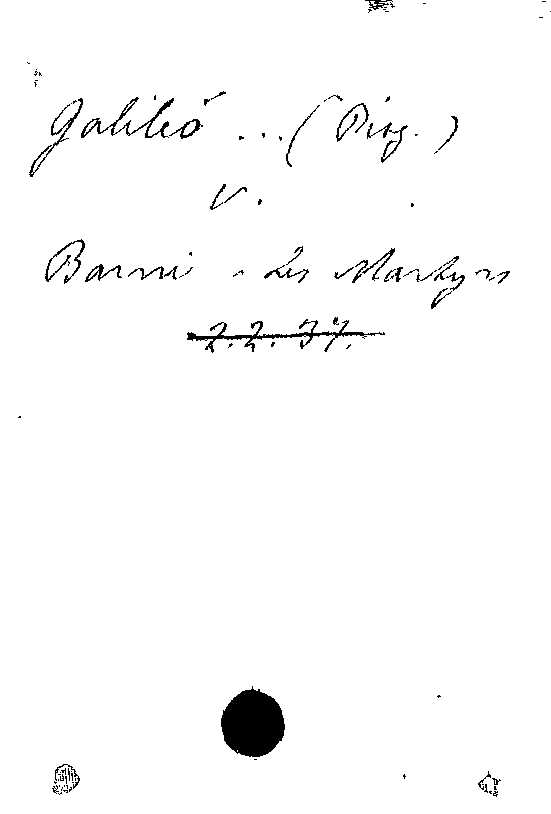 Galileo ... (Biog.)
v.
Barni - Les Martyrs
2.2.37.